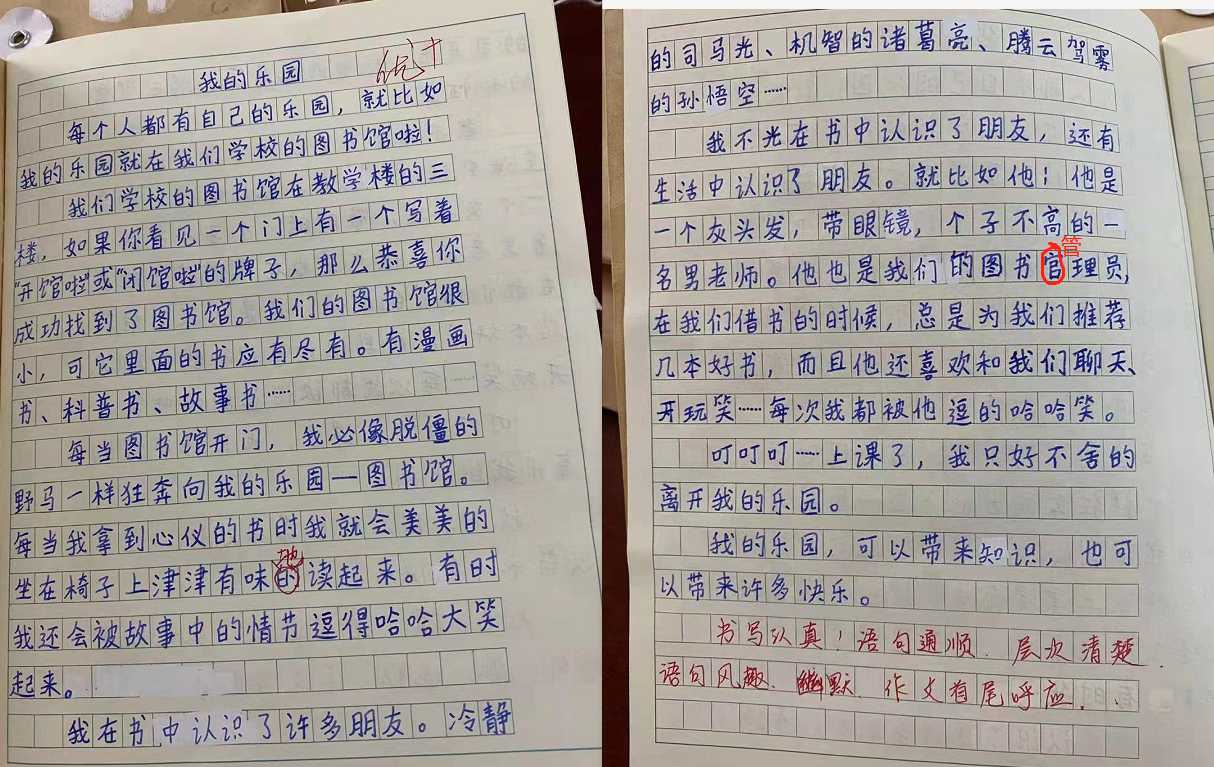 我的乐园
优+
每个人都有自己的乐园，就比如
我的乐园就在我们学校的图书馆啦！
我们学校的图书馆在教学楼的三
楼，如果你看见一个门上有一个写着
“开馆啦”或“闭馆啦”的牌子，那么恭喜你
成功找到了图书馆。我们的图书馆很
小，可它里面的书应有尽有。有漫画
书、科普书、故事书……
每当图书馆开门，我必像脱僵的
野马一样狂奔向我的乐园—图书馆。
每当我拿到心仪的书时我就会美美的
地
坐在椅子上津津有味的读起来。有时
我还会被故事中的情节逗得哈哈大笑
起来。
我在书中认识了许多朋友。冷静
的司马光、机智的诸葛亮、腾云驾雾
的孙悟空……
我不光在书中认识了朋友，还有
生活中认识了朋友。就比如他：他是
一个灰头发，带眼镜，个子不高的一
管
名男老师。他也是我们的图书官理员，
在我们借书的时候，总是为我们推荐
几本好书，而且他还喜欢和我们聊天、
开玩笑……每次我都被他逗的哈哈笑。
叮叮叮……上课了，我只好不舍的
离开我的乐园。
我的乐园，可以带来知识，也可
以带来许多快乐。
书写认真！语句通顺．层次清楚．
语句风趣．幽默．作文首尾呼应．